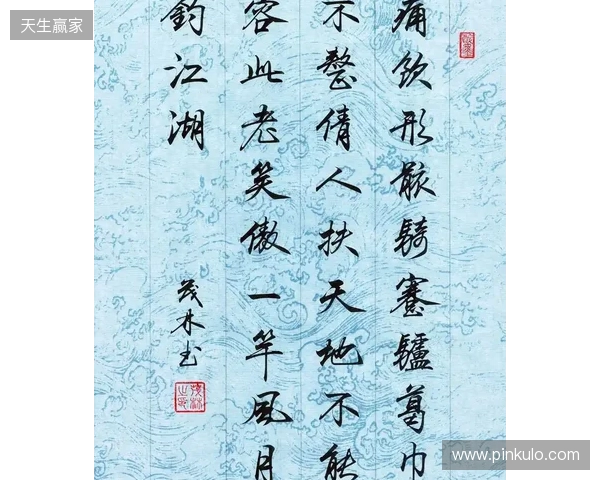 天生赢家
痛飲形骸騎蹇驢葛巾
不整倩人扶天地不能
容此老笑傲一竿風月
釣江湖
茂林书
www.pinkulo.com